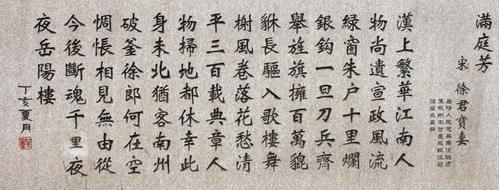 滿庭芳
宋 徐君寶妻
漢上繁華江南人
物尚遺宣政風流
綠窗朱户十里爛
銀鈎一旦刀兵齊
舉旌旗擁百萬貔
貅長驅入歌樓舞
榭風卷落花愁清
平三百載典章人
物掃地都休幸此
身未北猶客南州
破釜徐郎何在空
惆悵相見無由從
今後斷魂千里夜
夜岳陽樓
丁亥夏月